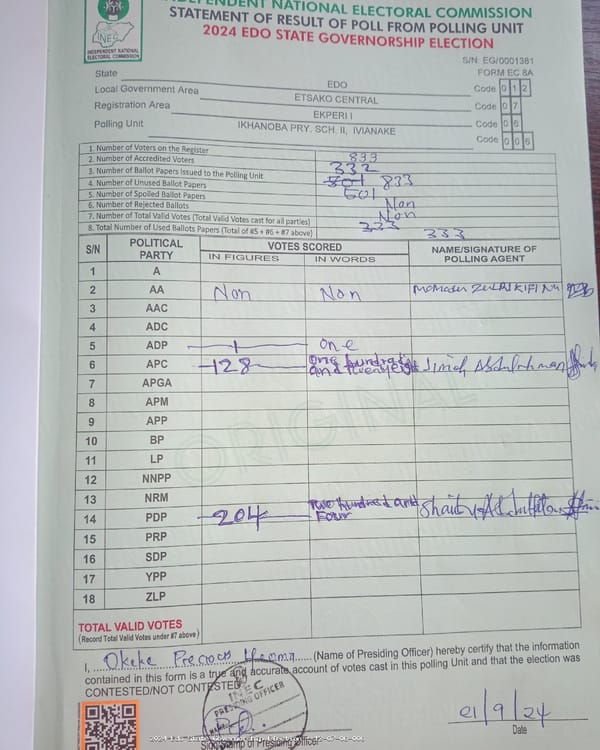 INDEPENDENT NATIONAL ELECTORAL COMMISSION
STATEMENT OF RESULT OF POLL FROM POLLING UNIT
2024 EDO STATE GOVERNORSHIP ELECTION
INEC
INDEPENDENT NATIONAL
ELECTORAL COMMISSION
S/N: EG/0001381
FORM EC 8A
State EDO Code 0 1 2
Local Government Area ETSAKO CENTRAL Code 0 7
Registration Area EKPERI I Code 0 6
Polling Unit IKHANOBA PRY. SCH. II, IVIANAKE Code 0 0 6
1. Number of Voters on the Register 833
2. Number of Accredited Voters 332
3. Number of Ballot Papers Issued to the Polling Unit 501 833
4. Number of Unused Ballot Papers 501
5. Number of Spoiled Ballot Papers Non
6. Number of Rejected Ballots Non
7. Number of Total Valid Votes (Total Valid Votes cast for all parties) 333
8. Total Number of Used Ballots Papers (Total of #5 + #6 + #7 above) 333
S/N POLITICAL PARTY VOTES SCORED NAME/SIGNATURE OF POLLING AGENT
IN FIGURES IN WORDS
1 A
2 AA Non Non
3 AAC
4 ADC
5 ADP 1 one
6 APC 128 One hundred and twenty eight
7 APGA
8 APM
9 APP
10 BP
11 LP
12 NNPP
13 NRM
14 PDP 204 Two hundred and Four
15 PRP
16 SDP
17 YPP
18 ZLP
ORIGINAL
TOTAL VALID VOTES
(Record Total Valid Votes under #7 above)
I, Okeke Precious (Name of Presiding Officer) hereby certify that the information
contained in this form is a true and accurate account of votes cast in this polling Unit and that the election was
CONTESTED/NOT CONTESTED
INEC
PRESIDING OFFICER
21/9/24
Date
Sign/Stamp of Presiding Officer